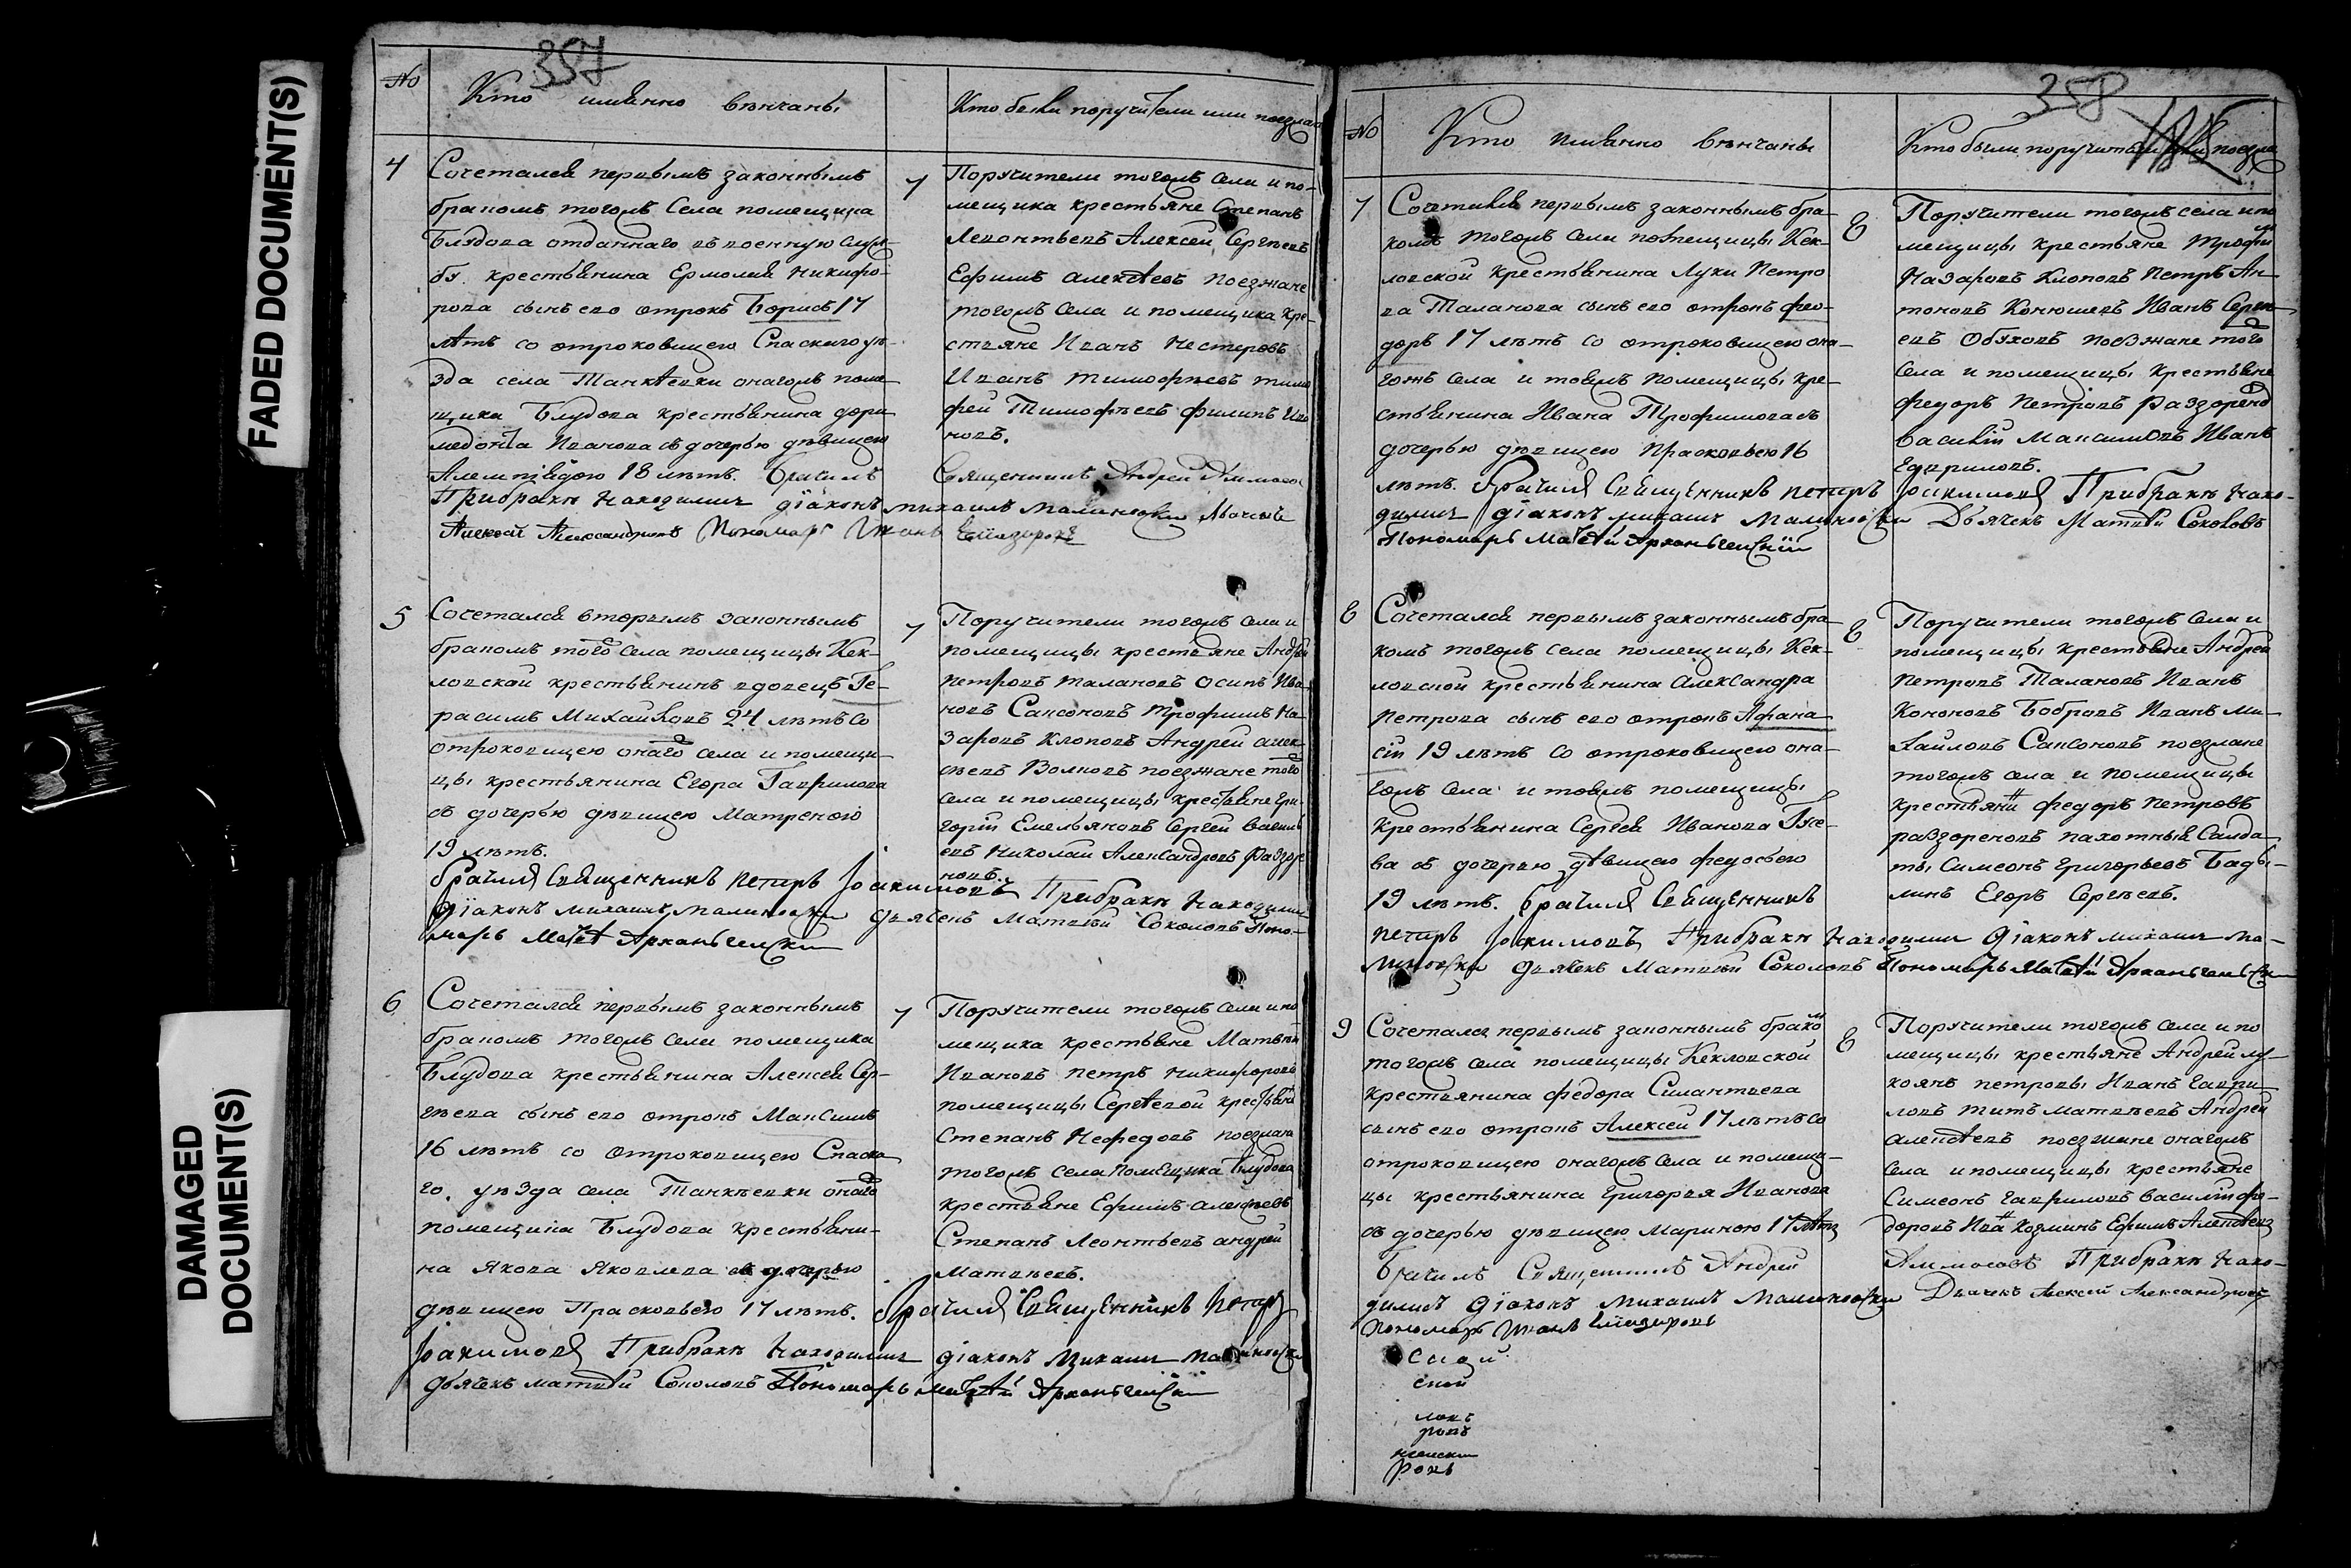 FADED DOCUMENT(S)
DAMAGED
DOCUMENT(S)
357
№
Кто имѣнно вѣнчаны
Кто были поручители или поезжан
4
Сочетался первымъ законнымъ
бракомъ тогожъ Села помещика
Блудова отданнаго въ военную служ-
бу крестьянина Ермолая Никифо-
рова сынъ его отрокъ Борисъ 17
лѣтъ со отроковицею Спаскаго уѣ-
зда села Танкѣевки онагожъ поме-
щика Блудова крестьянина дори-
медонта Иванова съ дочерью дѣвицею
18 лѣтъ. Брачилъ
При бракѣ находились діаконъ михаилъ малиновски
Алексей Александровъ Пономарь Иванъ
7
Поручители тогожъ Села и по-
мещика крестьяне Степанъ
Левонтьевъ Алексей Сергѣевъ
Ефимъ Алексѣевъ поезжане
тогожъ Села и помещика кре-
стьяне Иванъ Нестеровъ
Иванъ Тимофѣевъ тимо
фей Тимофѣевъ Филипъ Ива
новъ.
Священникъ Андрей
5
Сочетался вторымъ законнымъ
бракомъ того села помещицы Кек-
ловской крестьянинъ вдовецъ Ге-
расимъ Михайловъ 24 лѣтъ со
отроковицею онаго села и помещи-
цы крестьянина Егора Гаврилова
съ дочерью дѣвицею Матреною
19 лѣтъ.
брачилъ Священникъ петръ Іоакимовъ При бракѣ находились
діаконъ михаилъ малиновски дьячекъ Матвей Соколовъ Поно-
марь Матѳей Архангельски
7
Поручители тогожъ села и
помещицы крестьяне Андрей
Петровъ Талановъ Осипъ Ива
новъ Сапсоновъ Трофимъ На-
заровъ Клоповъ Андрей алек-
сѣевъ Волковъ поезжане того
села и помещицы крестьяне гри-
горій Емельяновъ Сергей васильe
евъ Николай Александровъ Раззоре
новъ.
6
Сочетался первымъ законнымъ
бракомъ тогожъ Села помещика
Блудова крестьянина Алексея Сер-
гѣева сынъ его отрокъ Максимъ
16 лѣтъ со отроковицею Спаска-
го уѣзда села Танкѣевки онаго
помещика Блудова крестьяни-
на Якова Яковлева съ дочерью
дѣвицею Прасковьею 17 лѣтъ. брачилъ Священникъ Петръ
Іоакимовъ При бракѣ находились діаконъ Михаилъ Малиновски
дьячекъ матвей Соколовъ Пономарь матѳей Архангельскій
7
Поручители тогожъ Села и по
мещика крестьяне Матвѣй
Ивановъ петръ Никифоровъ
помещицы Сергѣевой крестьяне
Степанъ Нефедовъ поезжане
тогожъ села помещика Блудова
крестьяне Ефимъ алексѣевъ
Степанъ Леонтьевъ андрей
Матвѣевъ.
358
№
Кто имѣнно вѣнчаны
Кто были поручители или поезжа
7
Сочетался первымъ законнымъ бра-
комъ тогожъ Села помещицы Кек-
ловской крестьянина Луки Петро
ва Таланова сынъ его отрокъ фео-
доръ 17 лѣтъ со отроковицею она-
гожъ села и тояжъ помещицы кре-
стьянина Ивана Трофимова съ
дочерью дѣвицею Прасковьею 16
лѣтъ. брачилъ Священникъ петръ Іоакимовъ При бракѣ нахо-
дились діаконъ михаилъ Малиновски Дьячекъ Матвей Соколовъ
Пономарь Матѳей Архангельскій
8
Поручители тогожъ села и по
мещицы крестьяне Трофим
Назаровъ Клоповъ Петръ Ан-
тоновъ Конюшевъ Иванъ Серге-
евъ Обуховъ поезжане того
села и помещицы крестьяне
федоръ Петровъ Раззорено
василій Максимовъ Иванъ
Гавриловъ.
8
Сочетался первымъ законнымъ бра-
комъ тогожъ села помещицы Кек-
ловской крестьянина Александра
Петрова сынъ его отрокъ Афана-
сій 19 лѣтъ со отроковицею она-
гожъ села и тояжъ помещицы
крестьянина Сергея Иванова
ва съ дочерью дѣвицею федосьею
19 лѣтъ. брачилъ Священникъ
петръ Іоакимовъ При бракѣ находились діаконъ михаилъ ма-
линовски дьячекъ Матвей Соколовъ Пономарь Матѳей Архангельски
8
Поручители тогожъ Села и
помещицы крестьяне Андрей
Петровъ Талановъ Иванъ
Кононовъ Бобровъ Иванъ ми-
хайловъ Сапсоновъ поезжане
тогожъ села и помещицы
крестьяни федоръ петровъ
раззореновъ пахотныя Салда-
ты Симеонъ Григорьевъ Бады-
линъ Егоръ Сергѣевъ.
9
Сочетался первымъ законнымъ брако
тогожъ села помещицы Кекловской
крестьянина федора Силантьева
сынъ его отрокъ Алексей 17 лѣтъ со
отроковицею онагожъ села и помещи-
цы крестьянина григорья Иванова
съ дочерью дѣвицею Мариною 17 лѣтъ
Брачилъ Священникъ Андрей
При бракѣ нахо-
дились діаконъ михаилъ Малиновски Дьячекъ Алексей Александровъ
пономарь Иванъ
8
Поручители тогожъ Села и по
мещицы крестьяне Андрей лу-
коянъ петровы Иванъ гаври-
ловъ титъ матвѣевъ Андрей
алексѣевъ поезжане онагожъ
села и помещицы крестьяне
Симеонъ гавриловъ василій фе-
доровъ Ива Козминъ Ефимъ Алексѣевъ
ской
ловъ
ровъ
ровъ